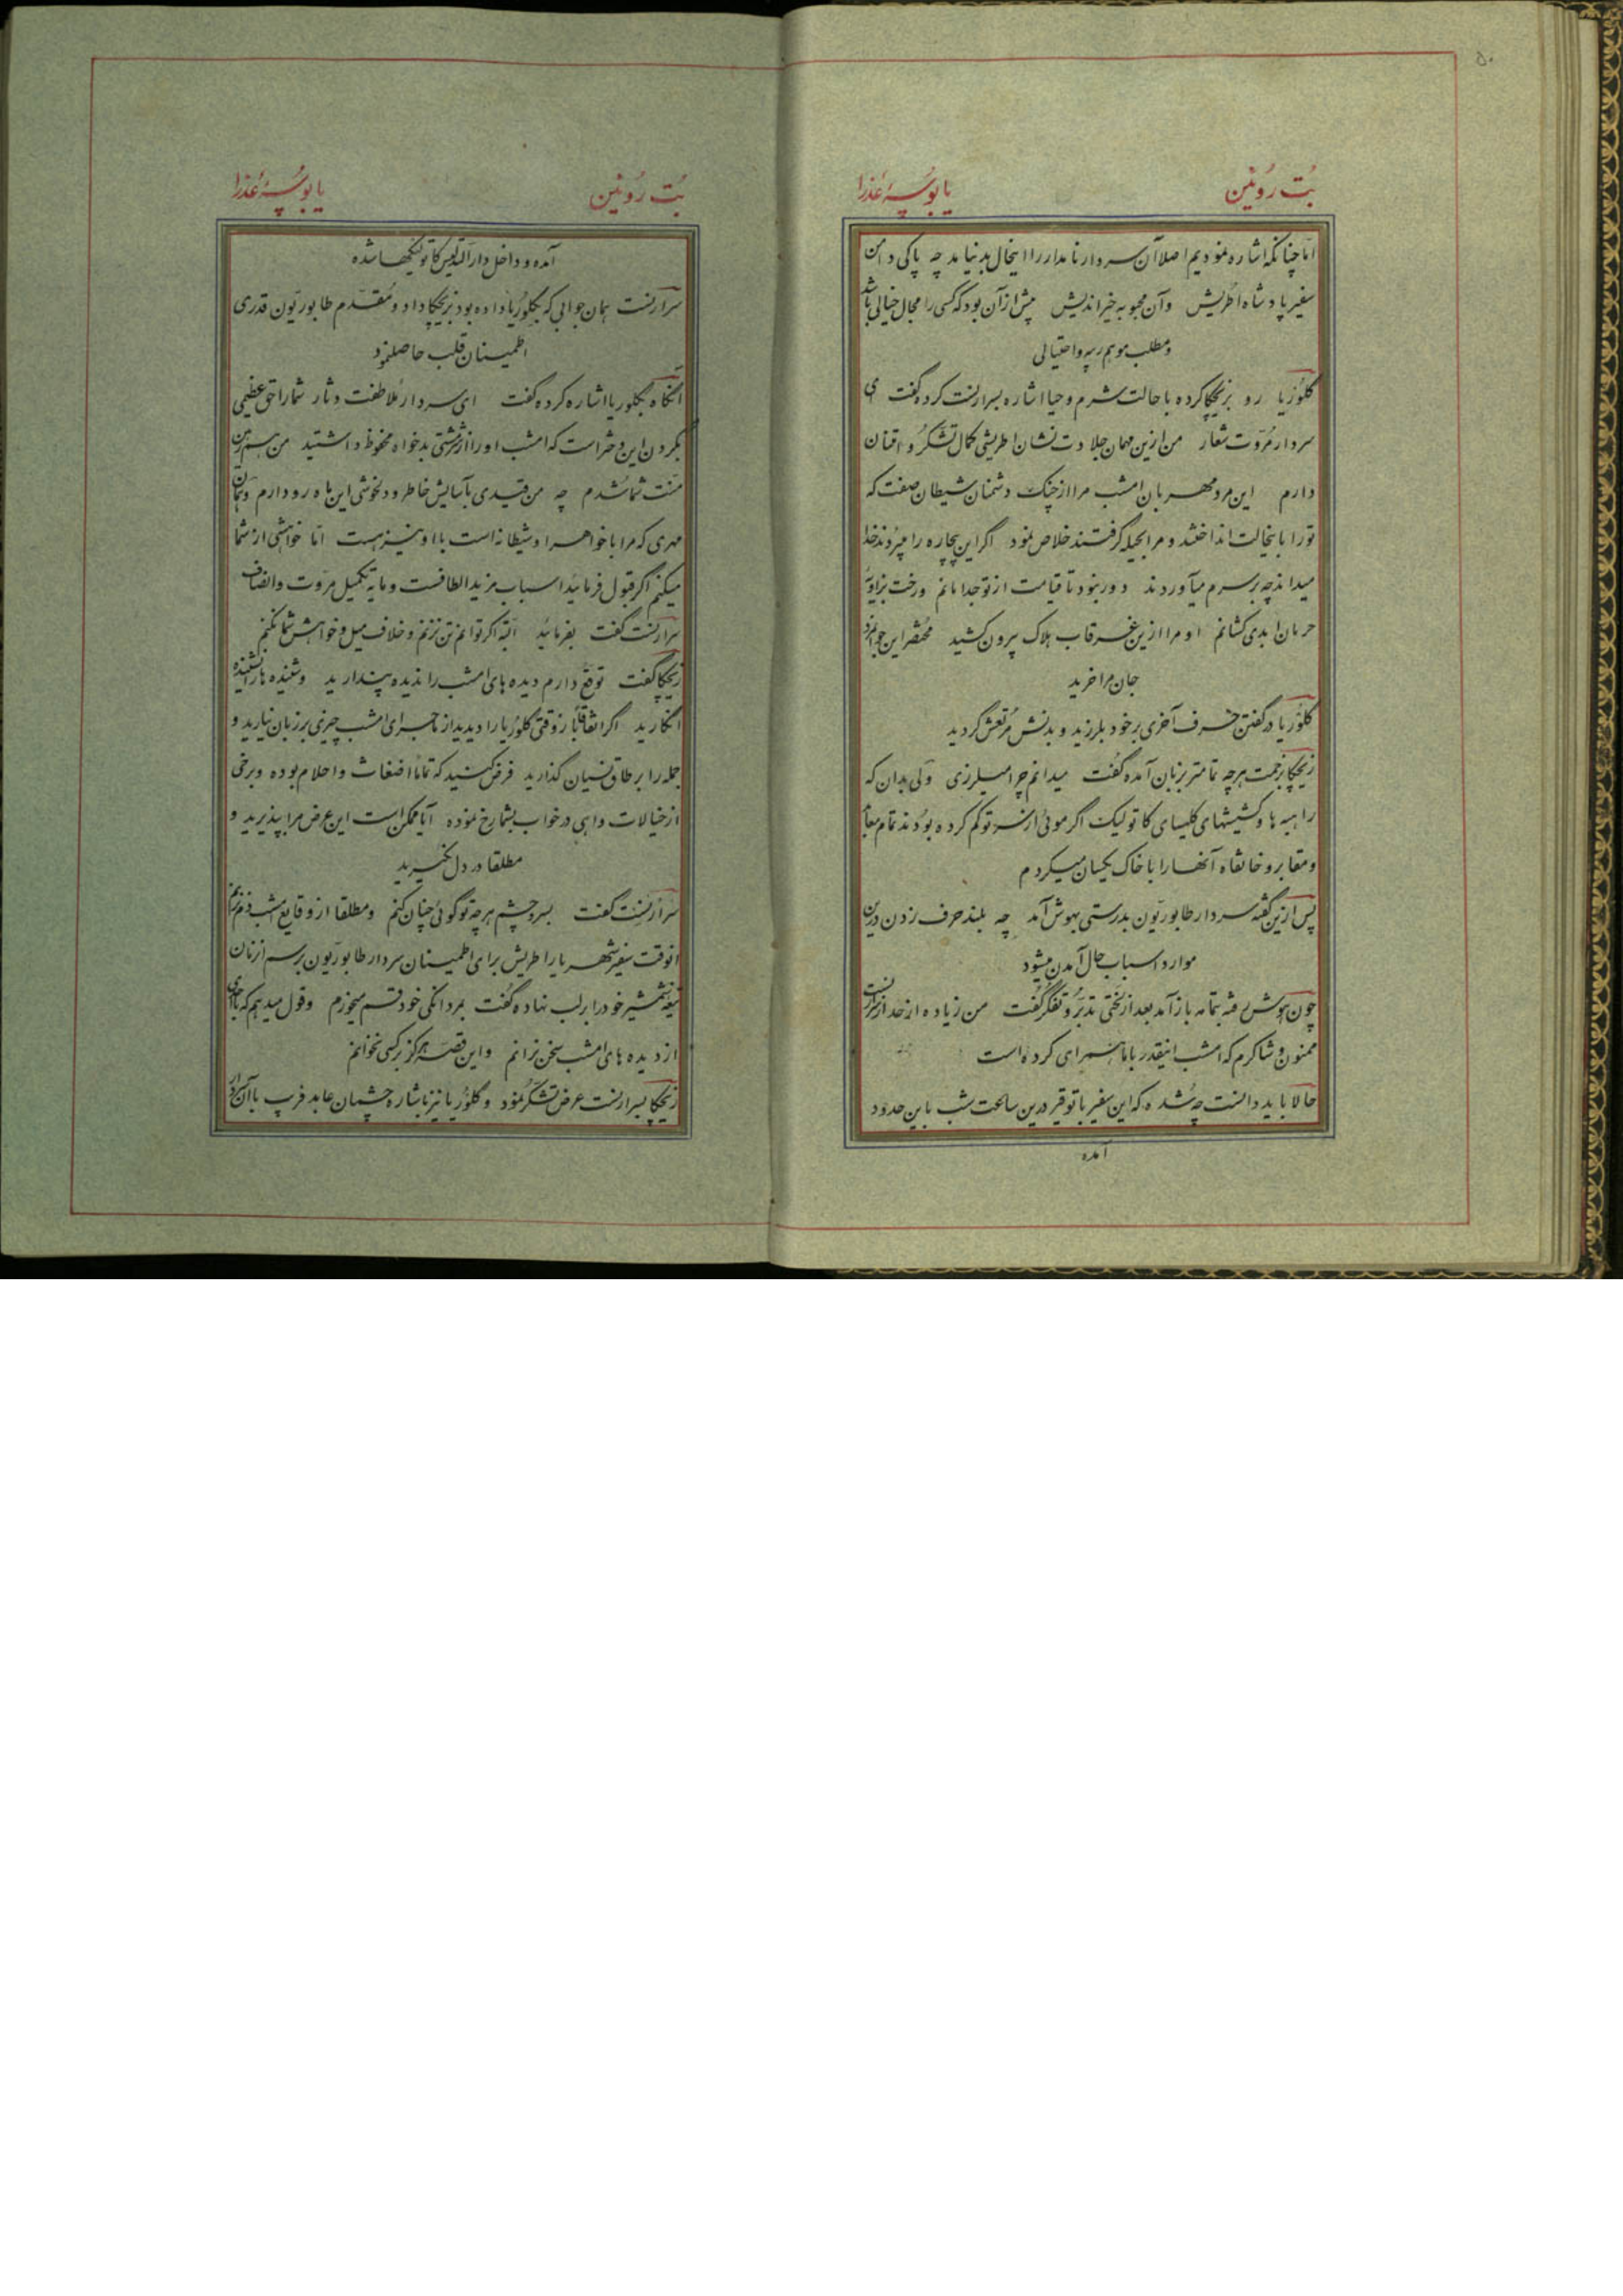 ۵۰
بُت رُوئین
یا بوسهٔ عذرا
اما چنانکه اشاره نمودیم اصلا آن سردار نامدار را اینخیال بد نیامد چه پاکی دامن
سفیر پادشاه اطریش وآن محبوبه خیراندیش پیش از آن بود که کسی را مجال خیالی باشد
و مطلب موهم ریبه و احتمالی
گلوریا رو بزیچکا کرده با حالت شرم و حیا اشاره بسرارنست کرده گفت ای
سردار مروّت شعار من ازین مهمان جلادت نشان اطریشی کمال تشکر و امتنان
دارم این مرد مهربان امشب مرا از چنک دشمنان شیطان صفت که
تو را باینحالت انداختند و مرا بحیله گرفتند خلاص نمود اگر این بیچاره را میبردند خدا
میداند چه بر سرم میآوردند دور نبود تا قیامت از تو جدا مانم و رخت بزاویهٔ
حرمان ابدی کشانم او مرا ازین غرقاب هلاک بیرون کشید مختصر این جوانمرد
جان مرا خرید
گلوریا در گفتن حرف آخری بر خود بلرزید و بدنش مرتعش گردید
زیچکا بزحمت هر چه تمامتر بزبان آمده گفت میدانم چرا میلرزی ولی بدان که
راهبه ها و کشیشهای کلیسای کاتولیک اگر موئی از سر تو کم کرده بودند تمام معابد
و مقابر و خانقاه آنها را با خاک یکسان میکردم
پس ازین گفته سردار طابوریّون بدرستی بهوش آمد چه بلند حرف زدن درین
موارد اسباب حال آمدن میشود
چون هوش رفته بتمامه باز آمد بعد از لختی تدبّر و تفکر گفت من زیاده از حد از سرارنست
ممنون و شاکرم که امشب اینقدر با ما همرای کرده است
حالا باید دانست چه شده که این سفیر با توقیر درین ساعت شب باین حدود
آمده
بُت رُوئین
یا بوسهٔ عذرا
آمده و داخل دارالتدلیس کاتولیکها شده
سرارنست همان جوابی که بگلوریا داده بود بزیچکا داد و مقدّم طابوریّون قدری
اطمینان قلب حاصل نمود
آنگاه بگلوریا اشاره کرده گفت ای سردار ملاطفت دثار شما را حق عظیمی
بگردن این دختر است که امشب او را از شر مشتی بدخواه محفوظ داشتید من هم رهین
منّت شما شدم چه من قیدی بآسایش خاطر و دلخوشی این ماه رو دارم و همان
مهری که مرا با خواهر اوشیطانه است با او نیز هست امّا خواهشی از شما
میکنم اگر قبول فرمائید اسباب مزید الطافست و مایه تکمیل مروّت و انصاف
سرارنست گفت بفرمائید البته اگر توانم تن نزنم و خلاف میل و خواهش شما نکنم
زیچکا گفت توقع دارم دیده های امشب را ندیده پندارید و شنیده ها را نشنیده
انگارید اگر اتفاقاً باز وقتی گلوریا را دیدید از ماجرای امشب چیزی بر زبان نیارید و
جمله را بر طاق نسیان گذارید فرض کنید که تماماً اضغاث و احلام بوده و برخی
از خیالات واهی در خواب بشما رخ نموده آیا ممکن است این عرض مرا بپذیرید و
مطلقا در دل نگیرید
سرارنست گفت بسر و چشم هر چه تو گوئی چنان کنم و مطلقا از وقایع امشب دم نزنم
آنوقت سفیر شهریار اطریش برای اطمینان سردار طابوریّون برسم آنزمان
تیغه شمشیر خود را بر لب نهاده گفت بمردانگی خود قسم میخورم و قول میدهم که با احدی
از دیده های امشب سخن نرانم و این قصّه هرگز بر کسی نخوانم
زیچکا بسرارنست عرض تشکر نمود و گلوریا نیز باشاره چشمان عابد فریب با آن